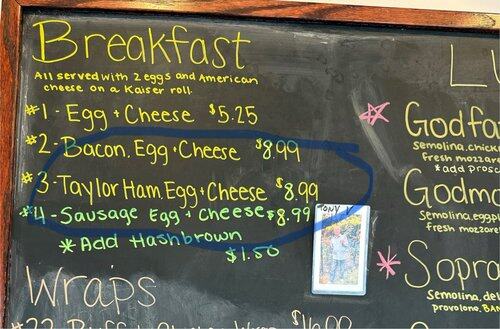 Breakfast
All served with 2 eggs and American
cheese on a Kaiser roll.
#1 - Egg + Cheese $5.25
#2 - Bacon, Egg + Cheese $8.99
#3 - Taylor Ham, Egg + Cheese $8.99
#4 - Sausage Egg + Cheese $8.99
* Add Hashbrown
$1.50
Wraps
TONY
Godfa
Semolina, chick
Fresh mozzare
*add prosc
Godm
Semolina, eggpl
fresh mozzare
* Sopra
Semolina, del
provolone, BAN